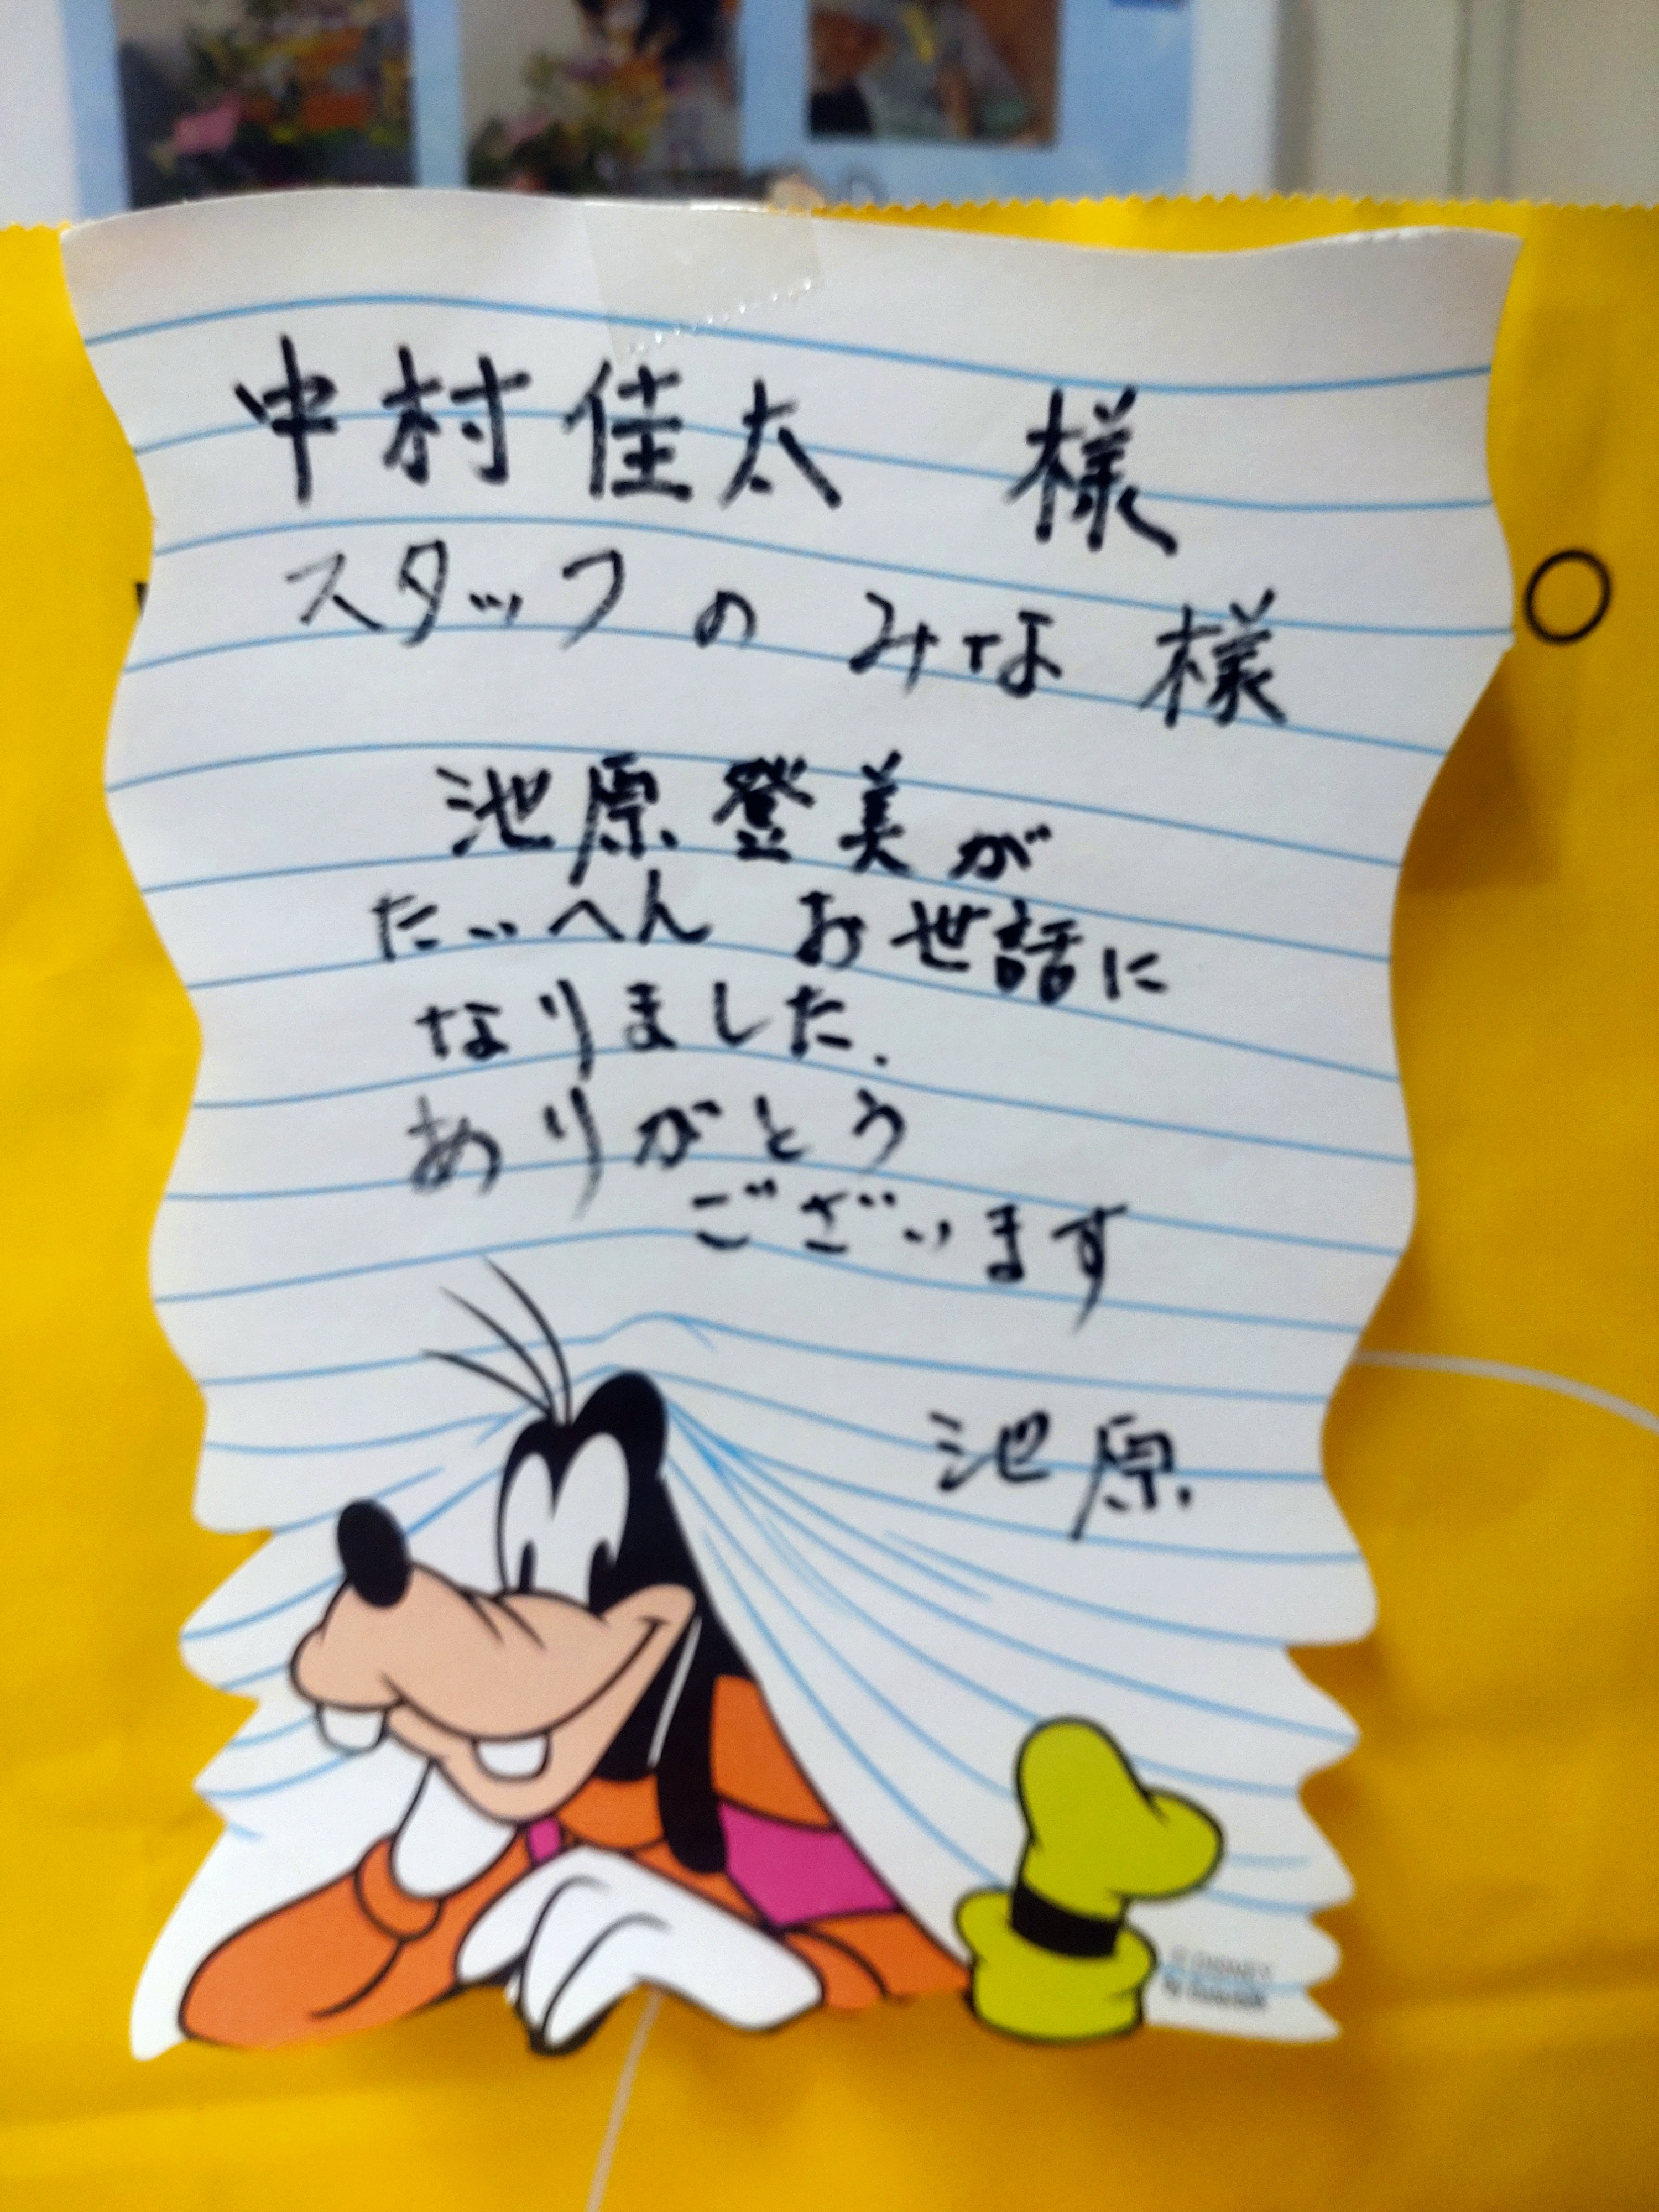 中村佳太 様
スタッフ の みな 様
池原登美が
たいへん お世話に
なりました.
ありがとう
ございます
池原
© DISNEY